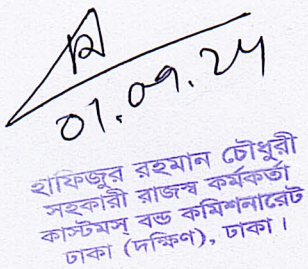 01.09.24
হাফিজুর রহমান চৌধুরী
সহকারী রাজস্ব কর্মকর্তা
কাস্টমস্ বন্ড কমিশনারেট
ঢাকা (দক্ষিণ), ঢাকা।